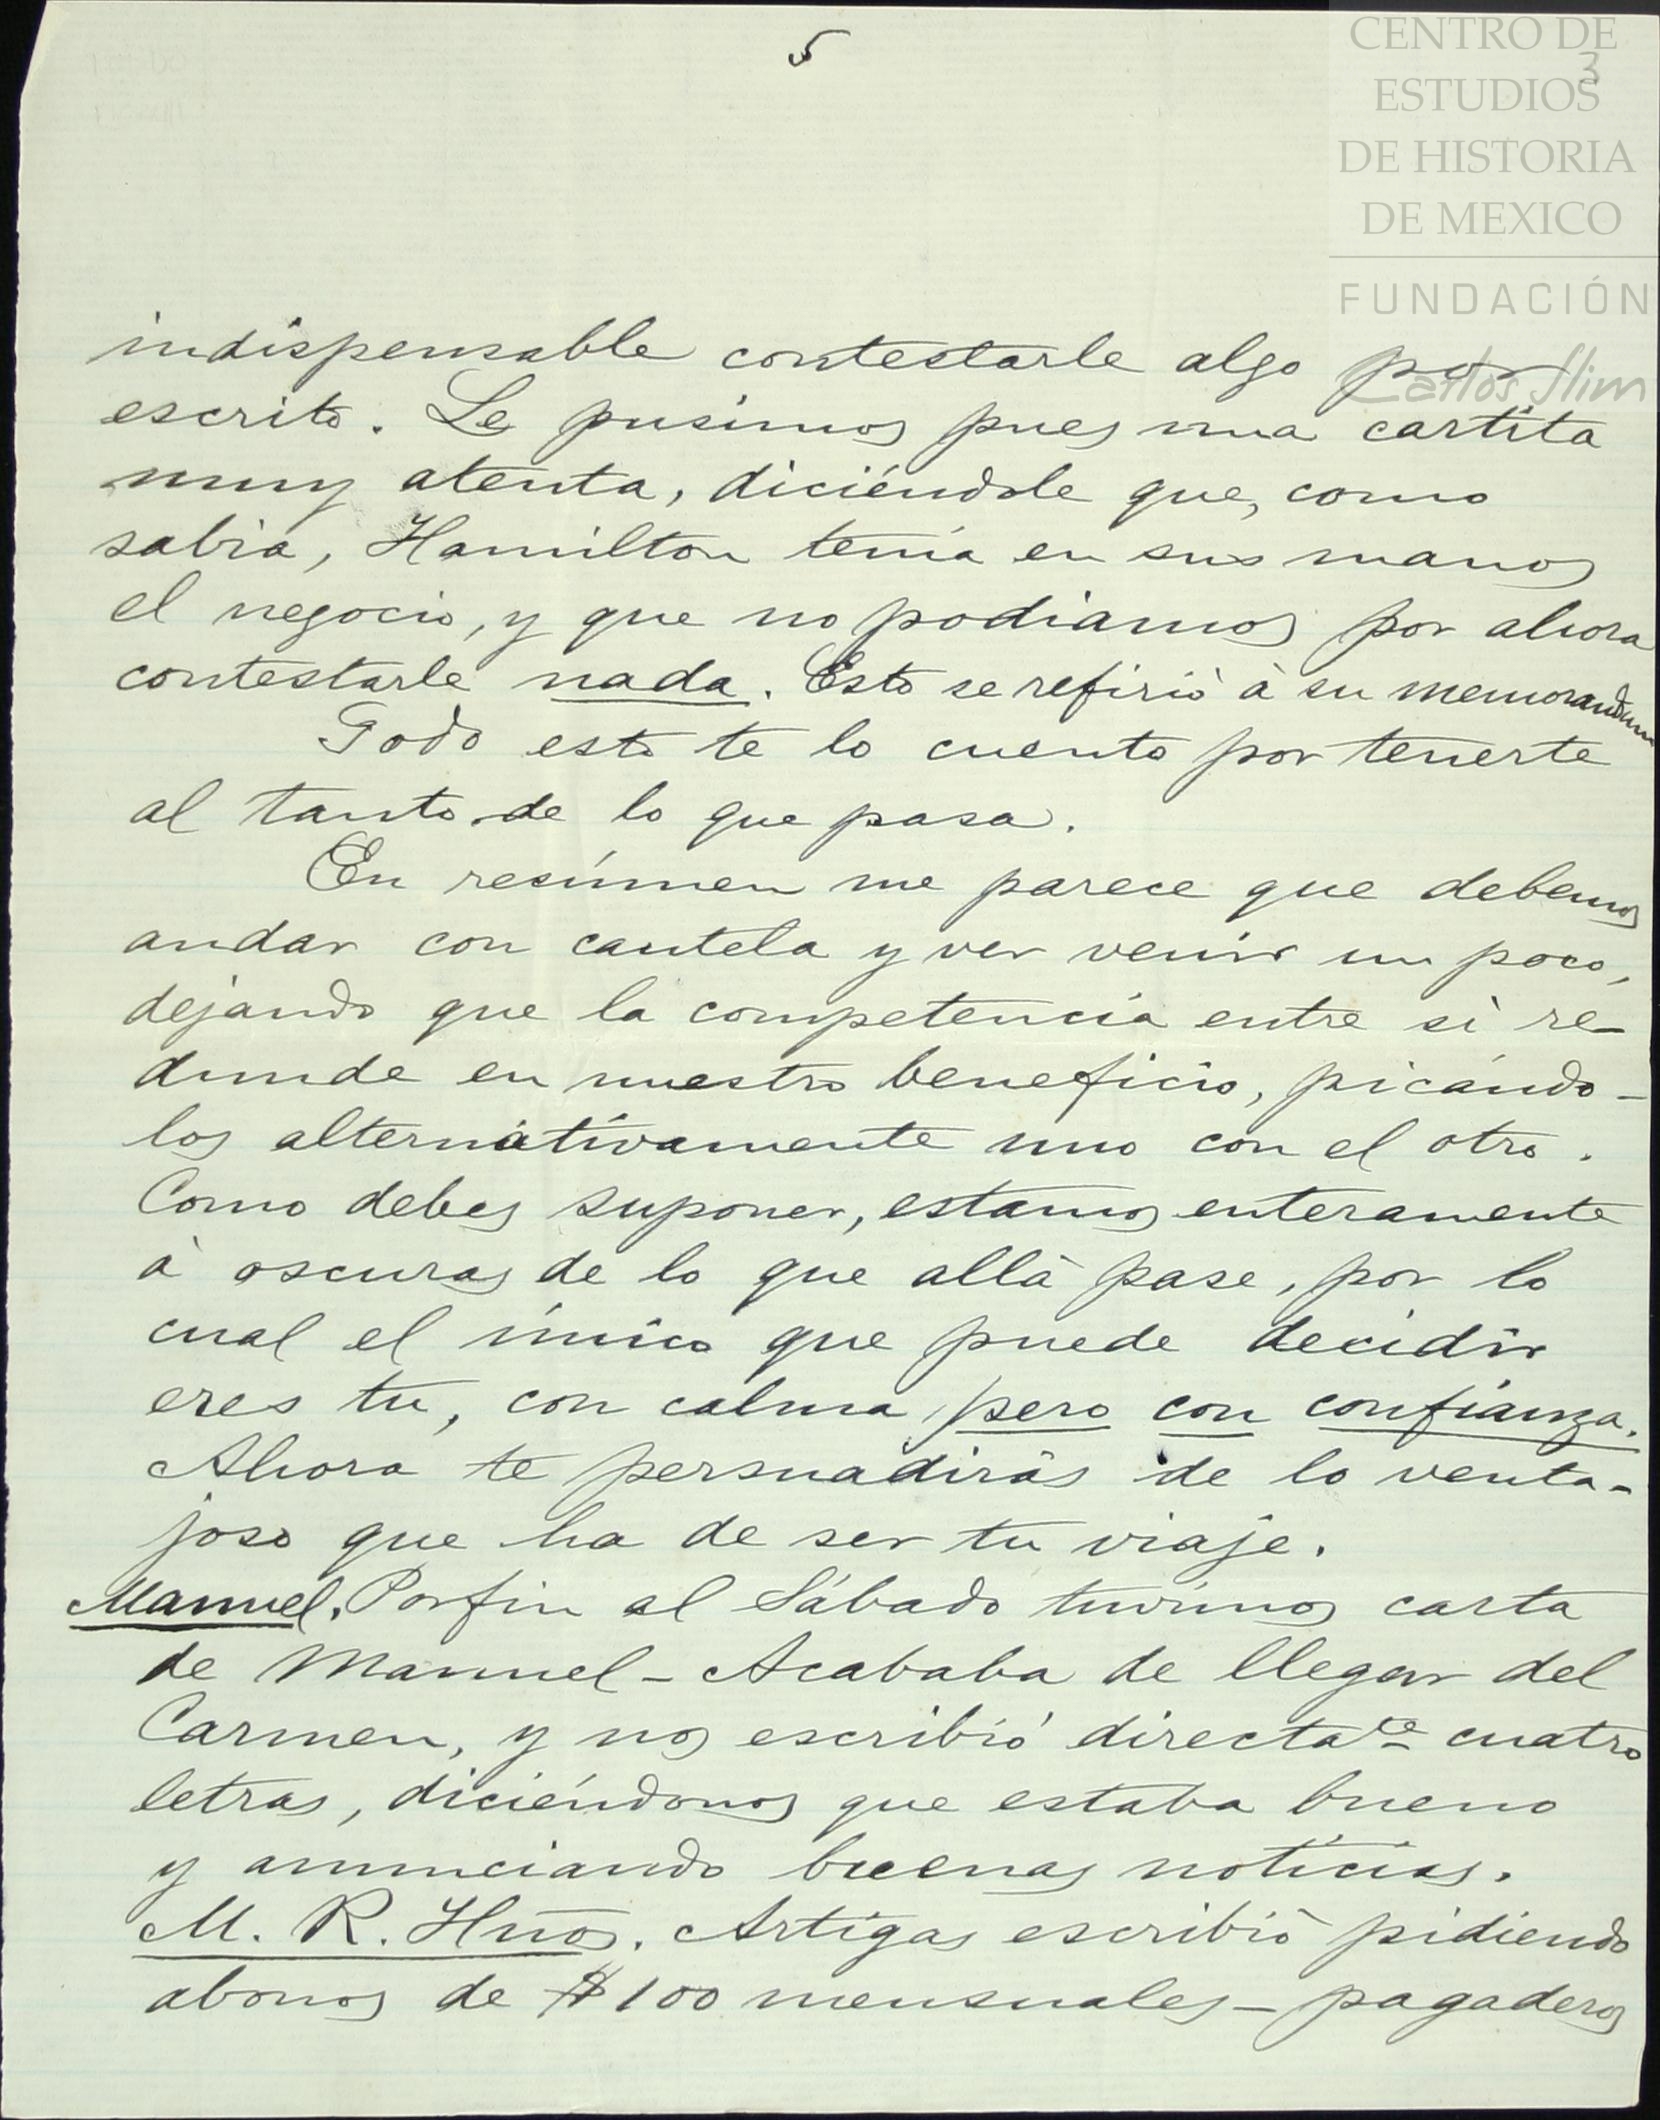 5
3
CENTRO DE
ESTUDIOS
DE HISTORIA
DE MEXICO
FUNDACIÓN
Carlos Slim
indispensable contestarle algo por
escrito. Le pusimos pues una cartita
muy atenta, diciéndole que, como
sabia, Hamilton tenía en sus manos
el negocio, y que no podiamos por ahora
contestarle nada. Esto se refirió à su memorandum
Todo esto te lo cuento por tenerte
al tanto de lo que pasa.
En resúmen me parece que debemos
andar con cautela y ver venir un poco,
dejando que la competencia entre sì re-
dunde en nuestro beneficio, picándo-
los alternativamente uno con el otro.
Como debes suponer, estamos enteramente
à oscuras de lo que allà pase, por lo
cual el único que puede decidir
eres tu, con calma pero con confianza.
Ahora te persuadirás de lo venta-
joso que ha de ser tu viaje.
Manuel. Por fin el Sábado tuvimos carta
de Manuel - Acababa de llegar del
Carmen, y nos escribió directate cuatro
letras, diciéndonos que estaba bueno
y anunciando buenas noticias.
M. R. Hnos. Artigas escribió pidiendo
abonos de $100 mensuales - pagaderos